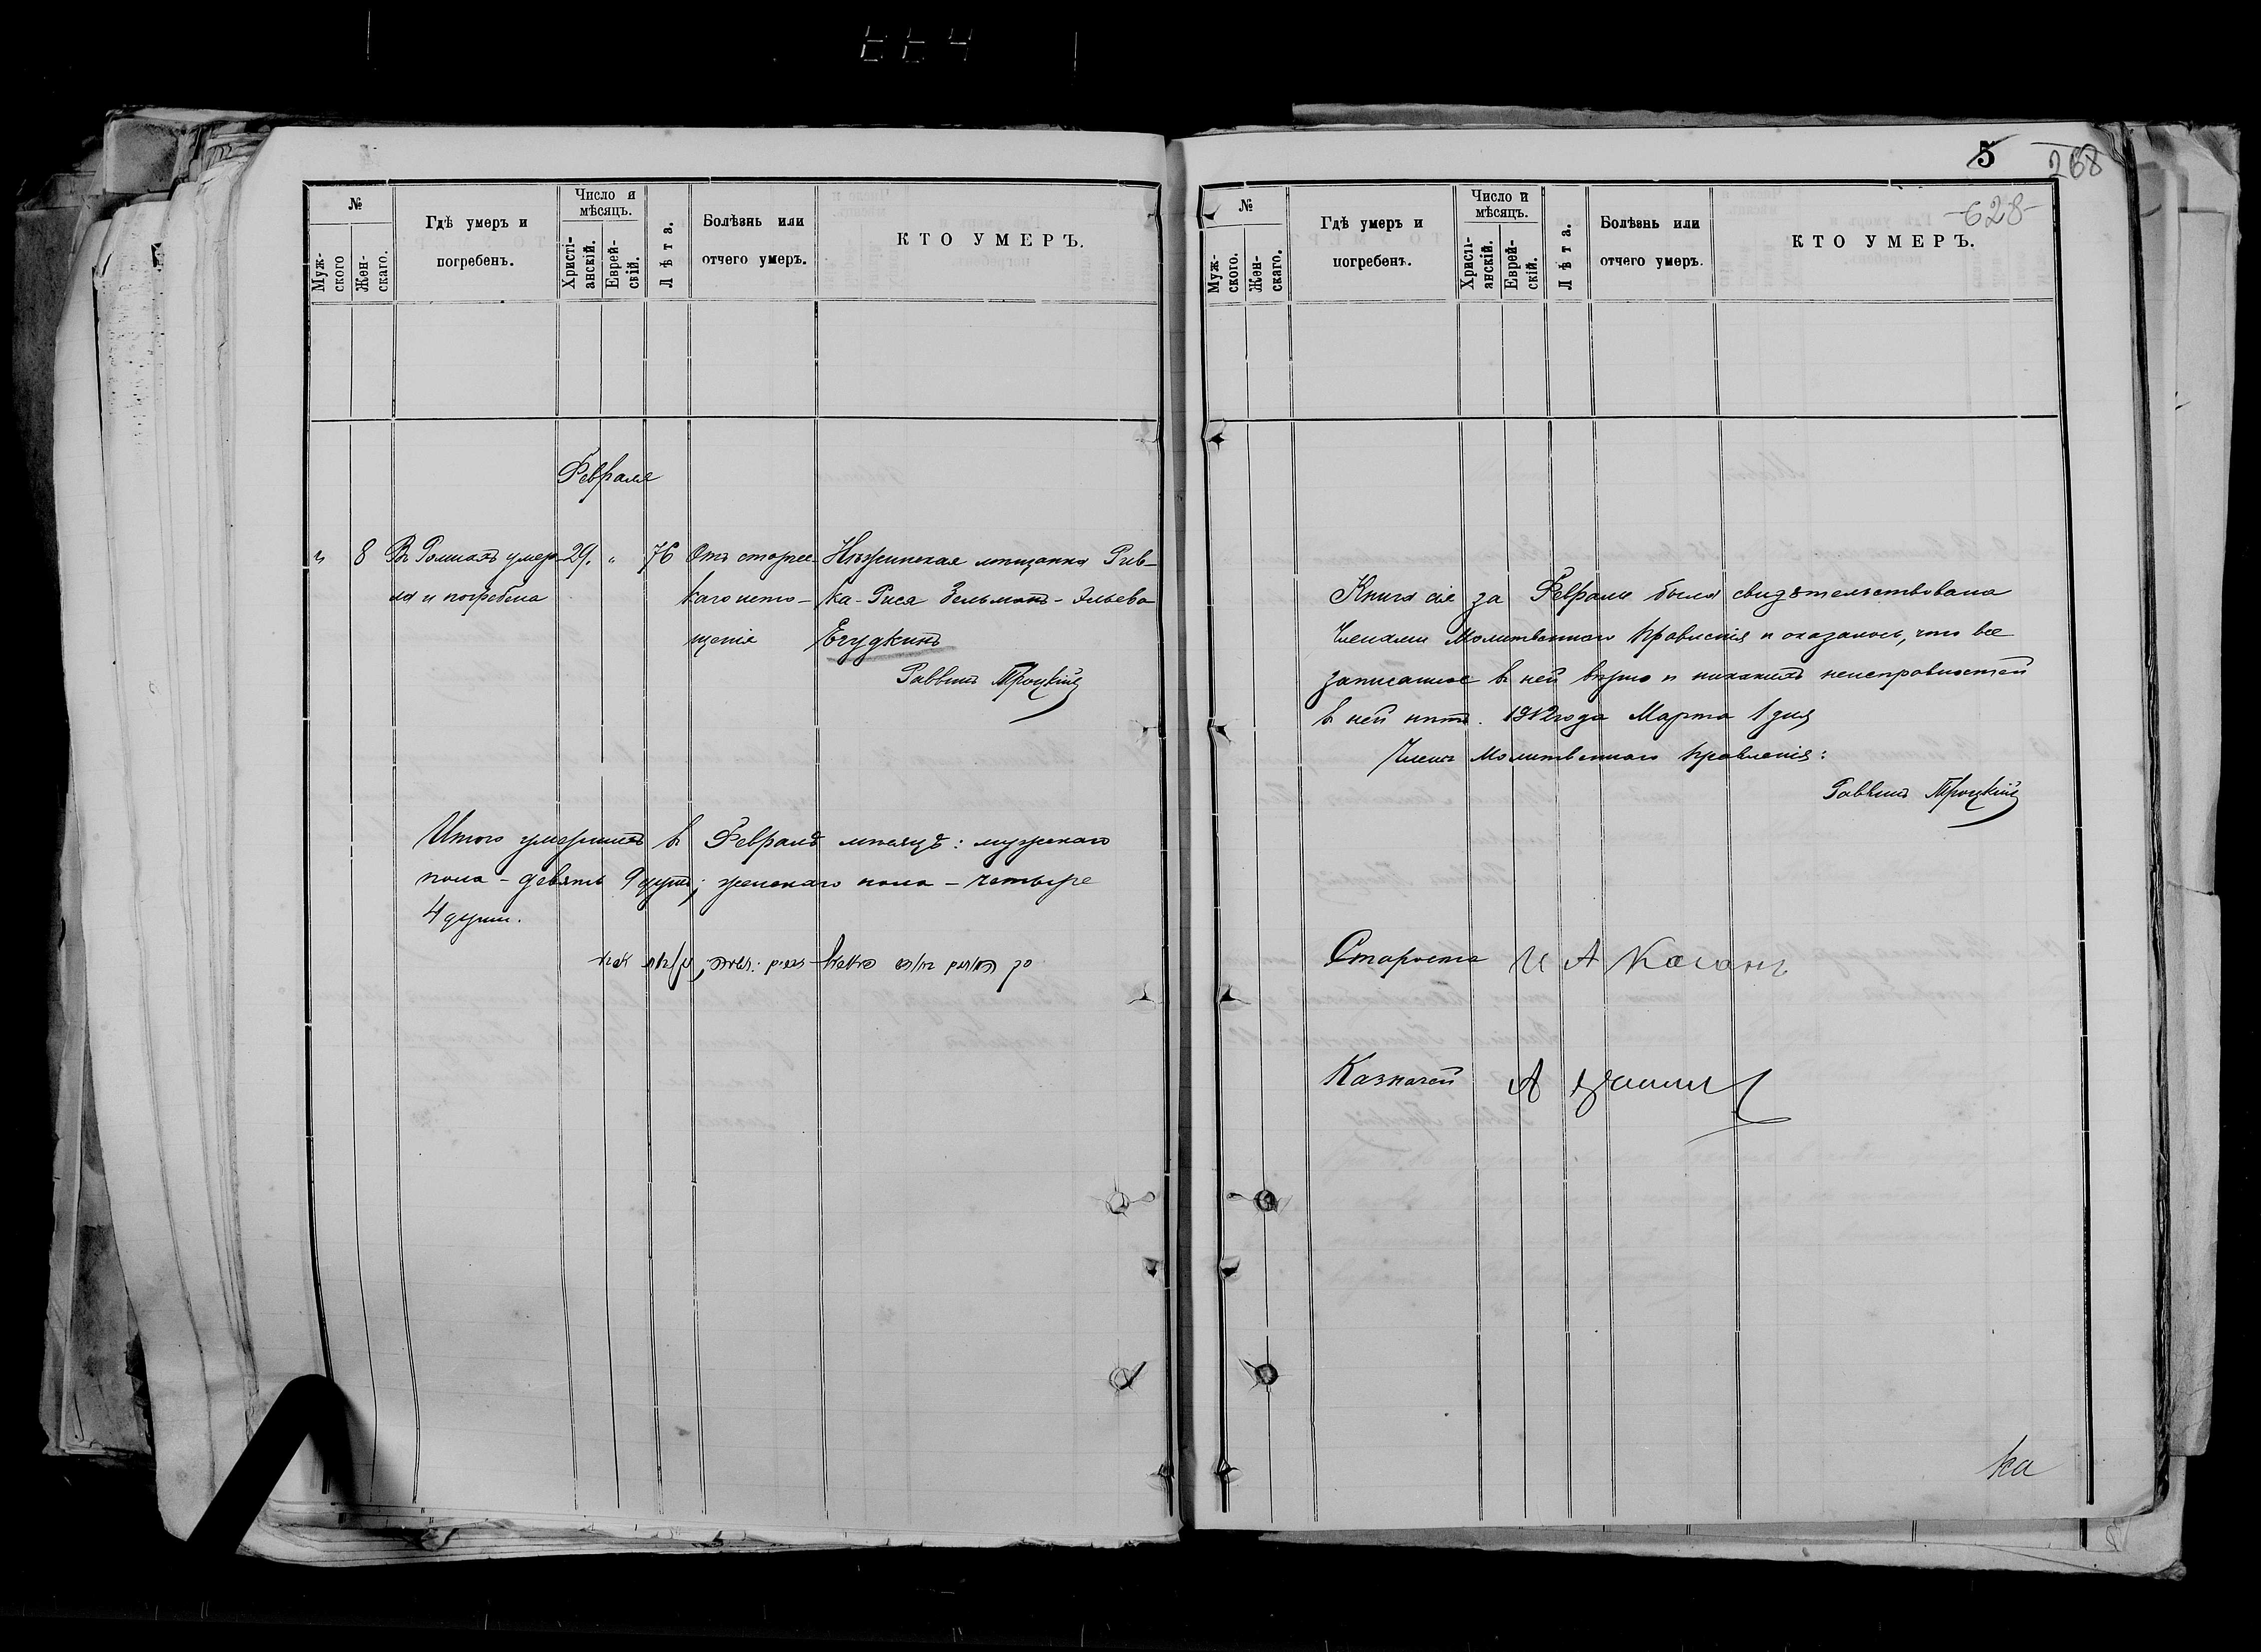 5
268
№
Муж-
ского
Жен-
скаго.
Гдѣ умеръ и
погребенъ.
Число и
мѣсяцъ.
Христі-
анскій.
Еврей-
скій.
Лѣта.
Болѣзнь или
отчего умеръ.
КТО УМЕРЪ.
Февраля
" 8 Въ Ромнахъ умер- 29. " 76 Отъ старчес- Нѣжинская мѣщанка Рив-
ла и погребена каго исто- ка-Рися Зельманъ-Эльева
щенія Егудкинъ
Раввинъ Троцкій
Итого умершихъ въ Февралѣ мѣсяцѣ: мужскаго
пола - девять 9 душъ; женскаго пола - четыре
4 души.
№
Муж-
ского.
Жен-
скаго.
Гдѣ умеръ и
погребенъ.
Число и
мѣсяцъ.
Христі-
анскій.
Еврей-
скій.
Лѣта.
Болѣзнь или
отчего умеръ.
-628-
КТО УМЕРЪ.
Книга сія за Февраль была свидѣтельствована
Членами Молитвеннаго Правленія и оказалось, что все
записанное въ ней вѣрно и никакихъ неисправностей
въ ней нѣтъ. 1912 года Марта 1 дня
Члены Молитвеннаго Правленія:
Раввинъ Троцкій
Староста И А Каганъ
Казначей А
ка